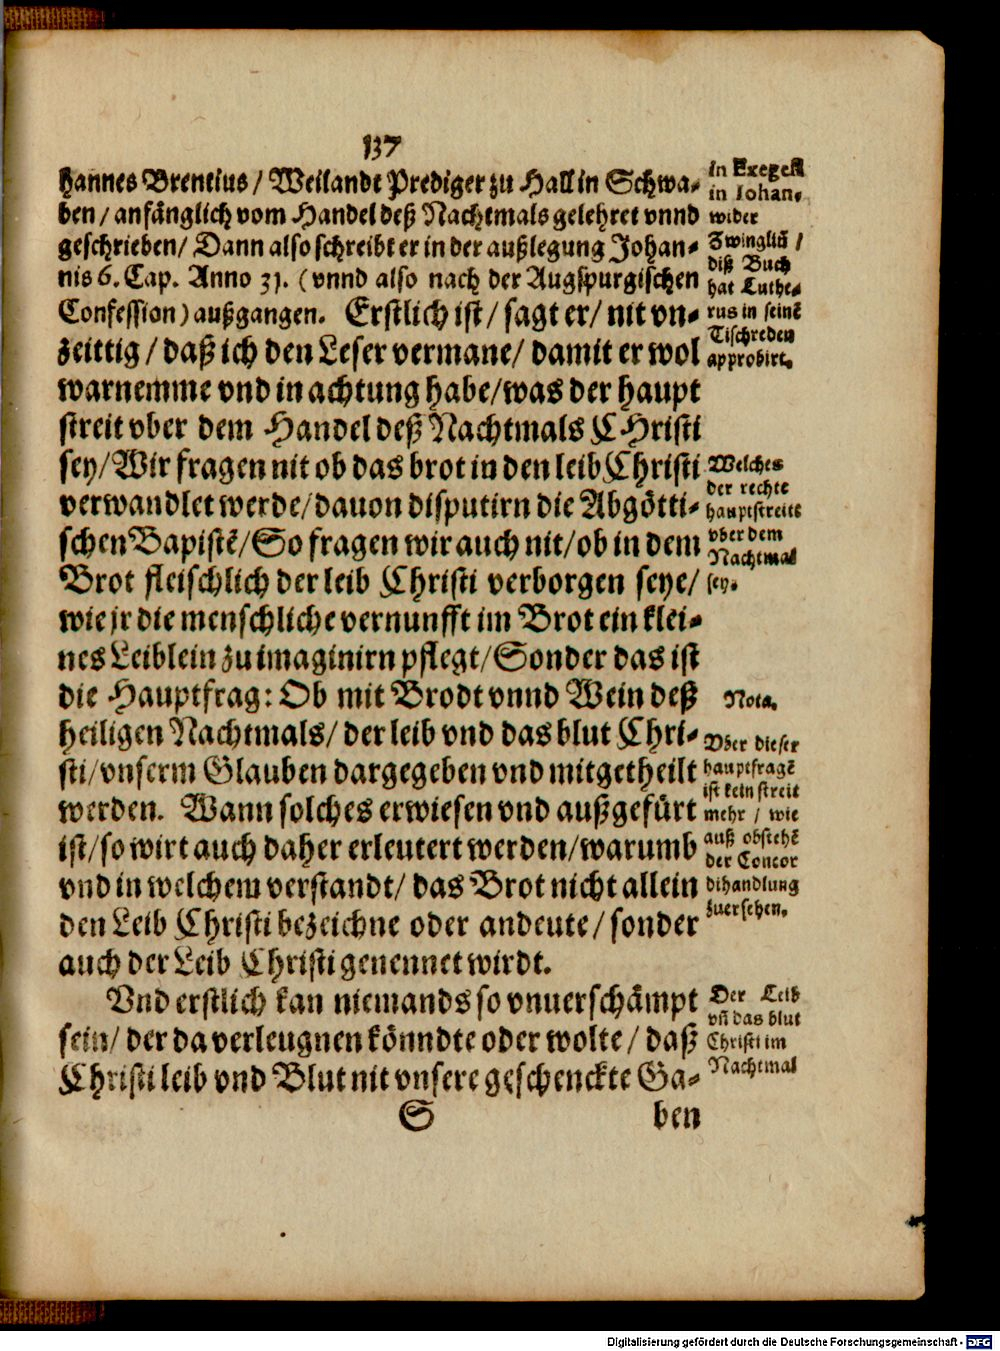 137
hannes Brentius / Weilandt Prediger zu Hall in Schwa-
ben / anfänglich vom Handel deß Nachtmals gelehret vnnd
geschrieben / Dann also schreibt er in der außlegung Johan-
nis 6. Cap. Anno 31. (vnnd also nach der Augspurgischen
Confession) außgangen. Erstlich ist / sagt er / nit vn-
zeittig / daß ich den Leser vermane / damit er wol
warnemme vnd in achtung habe / was der haupt
streit vber dem Handel deß Nachtmals CHristi
sey / Wir fragen nit ob das brot in den leib Christi
verwandlet werde / dauon disputirn die Abgötti-
schen Bapistẽ / So fragen wir auch nit / ob in dem
Brot fleischlich der leib Christi verborgen seye /
wie jr die menschliche vernunfft im Brot ein klei-
nes Leiblein zu imaginirn pflegt / Sonder das ist
die Hauptfrag: Ob mit Brodt vnnd Wein deß
heiligen Nachtmals / der leib vnd das blut Chri-
sti / vnserm Glauben dargegeben vnd mitgetheilt
werden. Wann solches erwiesen vnd außgefürt
ist / so wirt auch daher erleutert werden / warumb
vnd in welchem verstandt / das Brot nicht allein
den Leib Christi bezeichne oder andeute / sonder
auch der Leib Christi genennet wirdt.
Vnd erstlich kan niemands so vnuerschämpt
sein / der da verleugnen könndte oder wolte / daß
Christi leib vnd Blut nit vnsere geschenckte Ga-
S ben
in Exegesi
in Iohan.
wider
Zwingliũ /
diß Buch
hat Luthe-
rus in seinẽ
Tischreden
approbirt.
Welches
der rechte
hauptstreitt
vber dem
Nachtmal
sey.
Nota.
Vber dieser
hauptfragẽ
ist kein streit
mehr / wie
auß obstehẽ
der Concor
dihandlung
zuersehen.
Der Leib
vñ das blut
Christi im
Nachtmal
Digitalisierung gefördert durch die Deutsche Forschungsgemeinschaft - DFG